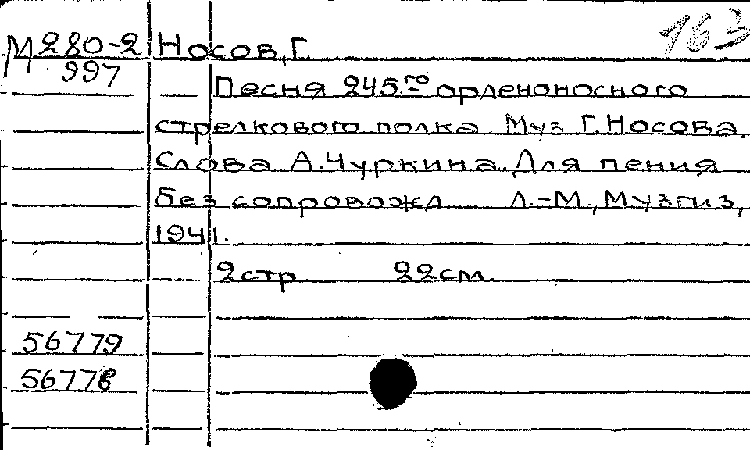 163
М280-2 Носов, Г.
997
Песня 245го орденоносного
стрелкового полка Муз Г. Носова.
Слова А. Чуркина Для пения
без сопровожд Л.-М., Музгиз,
1941.
2 стр 22 см
56779
56778